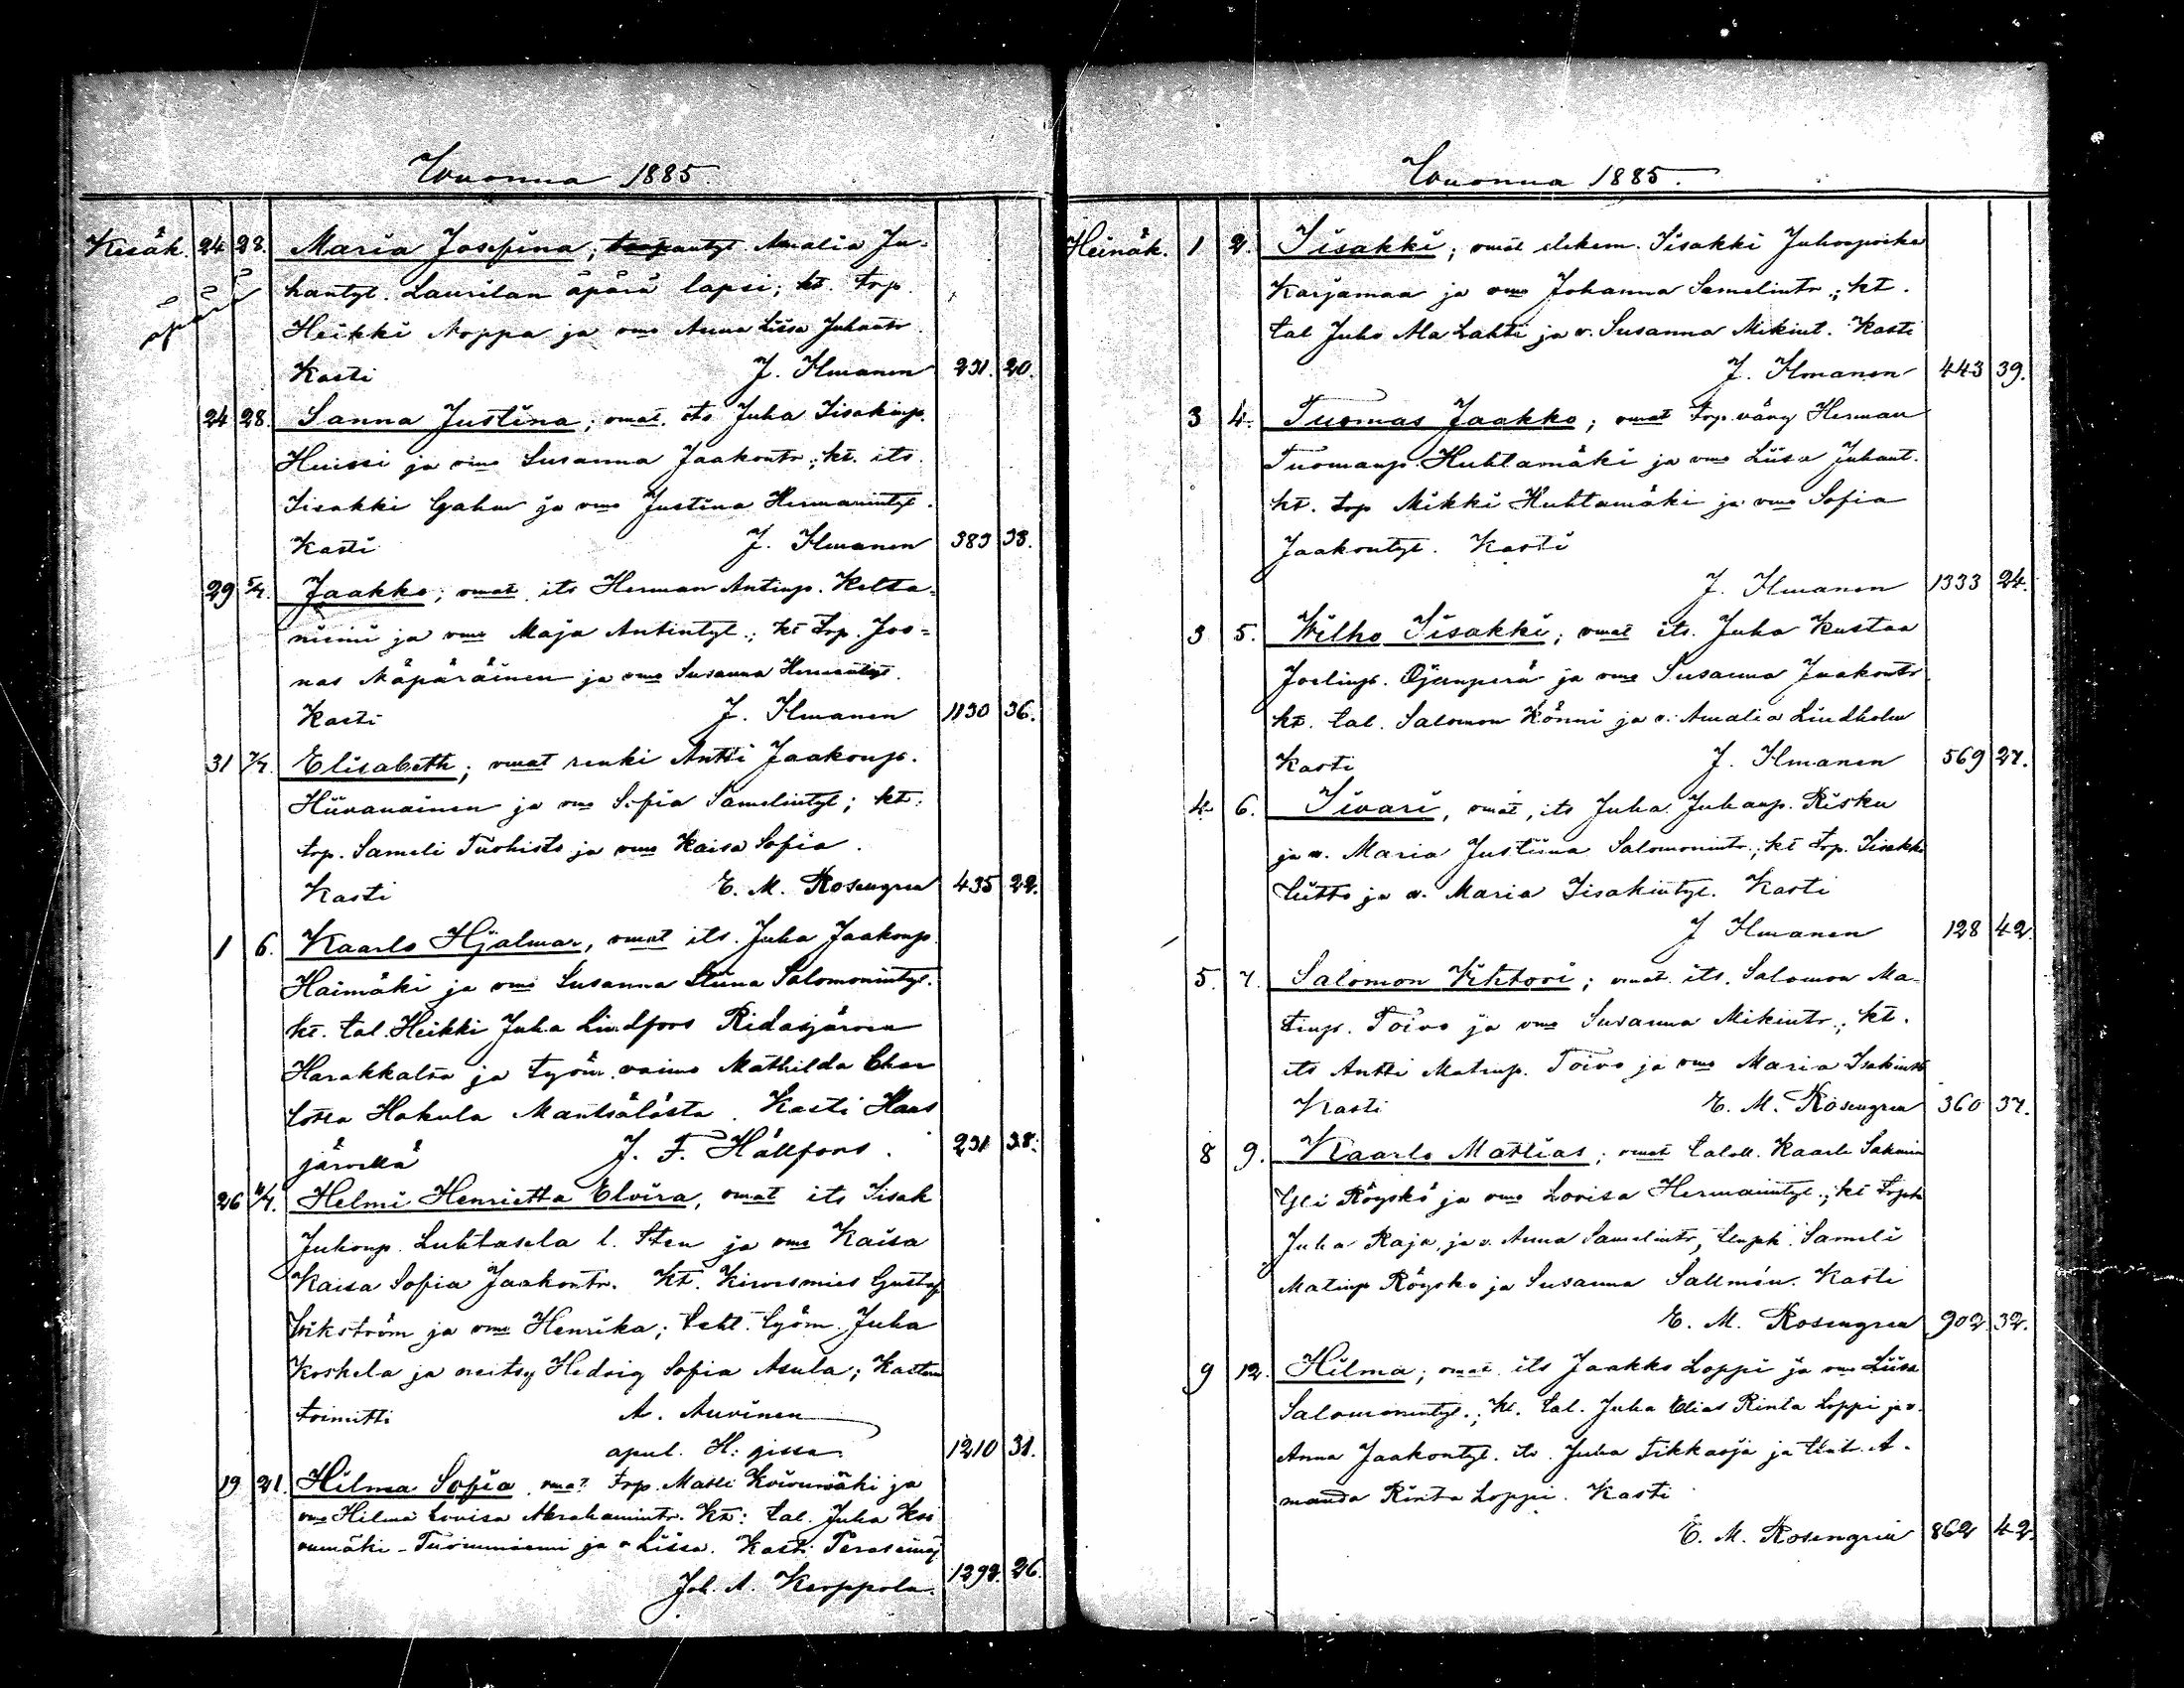 Wuonna 1885.
Kesäk. 24 28. Maria Josefina; Amalia Ju-
äpärä hantyt. Laurilan äpärä lapsi; kt. trp.
Heikki Noppa ja vmo Anna Liisa Juhantr.
Kasti J. Ilmanen 231. 20.
24 28. Sanna Justina; vmat. its Juha Iisakinp.
Huissi ja vmo Susanna Jaakontr.; kt. its.
Iisakki Gahm ja vmo Justina Hermanintyt.
Kasti J. Ilmanen 383 38.
29 5/7. Jaakko; vmat. its Herman Antinp. Kelta-
niemi ja vmo Maja Antintyt.; kt trp. Joo-
nas Näpäräinen ja vmo Susanna
Kasti J. Ilmanen 1130 36.
31 7/7. Elisabeth; vmat renki Antti Jaakonp.
Hiivanainen ja vmo Sofia Samelintyt; kt:
trp. Sameli Tuohisto ja vmo Kaisa Sofia.
Kasti E. M. Rosengren 435 22.
1 6. Kaarlo Hjalmar, vmat its. Juha Jaakonp.
Haimäki ja vmo Susanna Stiina Salomonintyt.
kt. tal. Heikki Juha Lindfors Ridasjärven
Harakkalta ja työm. vaimo Mathilda Char
lotta Hakula Mäntsälästä. Kasti Haus
järvellä J. F. Hällfors. 231 38.
26 Helmi Henrietta Elvira, vmat its Iisak
Juhonp. Luhtasela l. Sten ja vmo Kaisa
Kaisa Sofia Jaakontr. Kt. Kirvesmies Gustaf
Wikström ja vmo Henrika; työm. Juha
Koskela ja neitsy Hedvig Sofia Asula; Kasteen
toimitti A. Auvinen
apul. H: gissa. 1210 31.
19 21. Hilma Sofia, vmat trp. Matti Koivumäki ja
vmo Hilma Lovisa Abrahamintr. Kt: tal. Juha Koi
vumäki-Tuominiemi ja v Liisa. Kasti Peräseinäj
Joh. A. Keroppola. 1292. 26.
Wuonna 1885.
Heinäk. 1 2. Iisakki; vmat Iisakki Juhonpoika
Karjamaa ja vmo Johanna Samelintr.; kt.
tal Juho Ala Lahti ja v. Susanna Mikint. Kasti
J. Ilmanen 443 39.
3 4. Tuomas Jaakko; vmat trp. vävy Herman
Tuomanp. Huhtamäki ja vmo Liisa Juhant.
kt. trp Mikki Huhtamäki ja vmo Sofia
Jaakontyt. Kasti
J. Ilmanen 1333 24.
3 5. Wilho Iisakki; vmat its. Juha Kustaa
Joelinp. Ojanperä ja vmo Susanna Jaakontr
kt. tal. Salomon Könni ja v. Amalia Lindholm
Kasti J. Ilmanen 569 27.
4 6. Iivari, vmat, its Juha Juhanp. Risku
ja v. Maria Justiina Salomonintr.; kt trp. Iisakki
Lütto ja v. Maria Iisakintyt. Kasti
J Ilmanen 128 42.
5. 7. Salomon Vihtori; vmat. its. Salomon Ma-
tinp. Toivo ja vmo Susanna Mikintr.; kt.
its Antti Matinp. Toivo ja vmo Maria
Kasti E. M. Rosengren 360 37.
8 9. Kaarlo Matlias; vmat Kaarle
Yli Röyskö ja vmo Lovisa Hermanintyt.; kt
Juha Raja, ja v. Anna Samelintr, Sameli
Matinp Röysko ja Susanna Sallmén. Kasti
E. M. Rosengren 902. 32.
9 12. Hilma; vmat. its Jaakko Loppi ja vmo Liisa
Salomonintyt.; Kt. tal. Juha Elias Rinta Loppi ja v.
Anna Jaakontyt. its. Juha Tikkaoja ja A-
manda Rinta Loppi. Kasti
E. M. Rosengren 862 42.